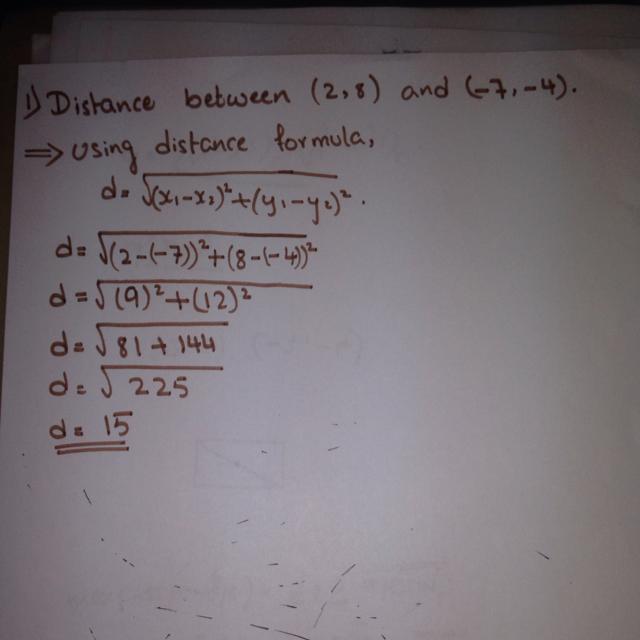 1) Distance between (2,8) and (-7,-4).
⇒ Using distance formula,
d=√(x₁-x₂)²+(y₁-y₂)².
d=√(2-(-7))²+(8-(-4))²
d=√(9)²+(12)²
d=√81+144
d=√225
d=15